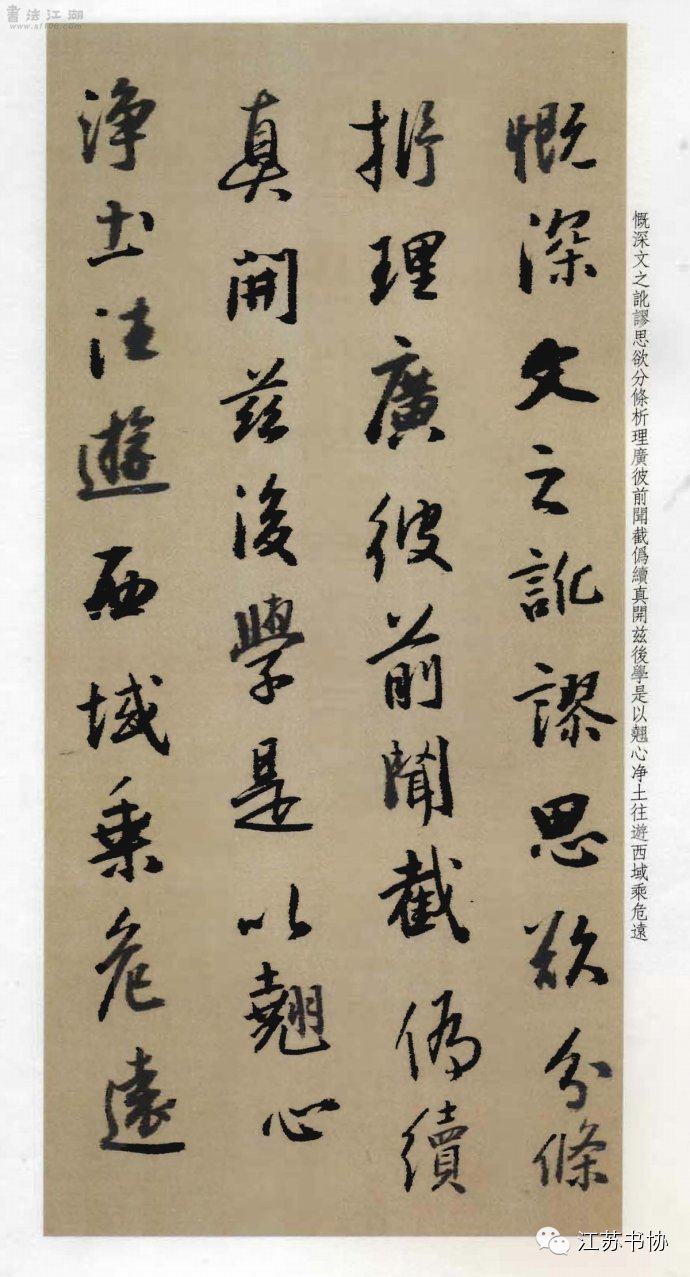 書法江湖
www.sf108.com
慨深文之訛謬思欲分條
析理廣彼前聞截偽續
真開茲後學是以翹心
淨土往遊西域乘危遠
慨深文之訛謬思欲分條析理廣彼前聞截僞續真開兹後學是以翹心净土往遊西域乘危遠
江苏书协